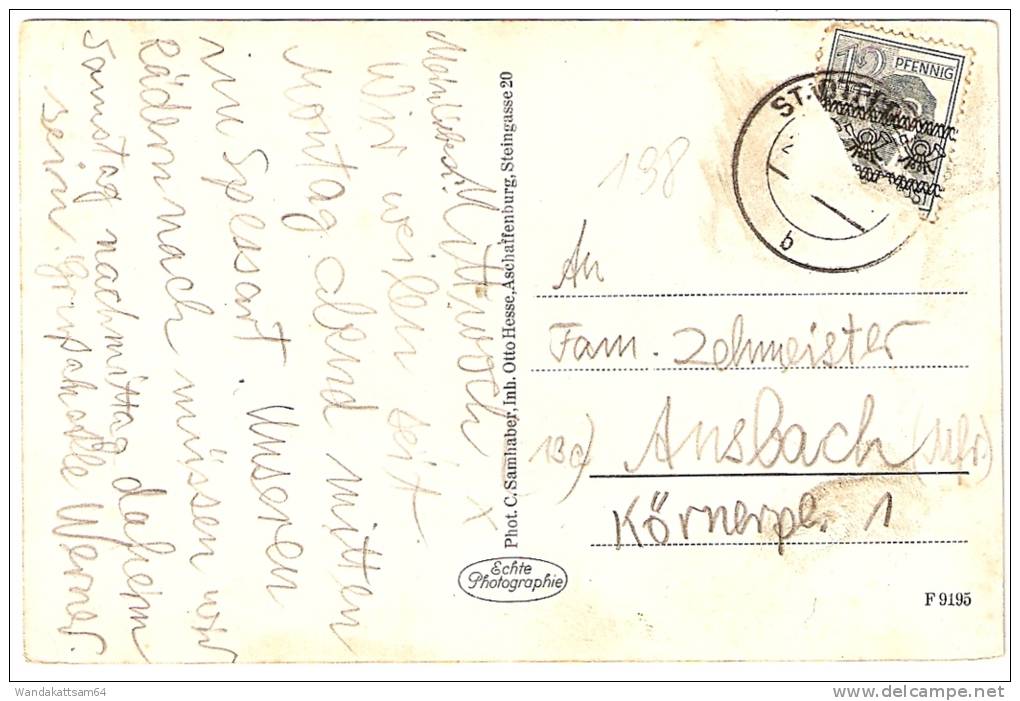 Mittwoch
Wir weilen seit
Montag abend mitten
im Spessart. Unseren
Läden nach müssen wir
Samstag nachmittag daheim
sein. Werner.
Phot. C. Samhaber, Inh. Otto Hesse, Aschaffenburg, Steingasse 20
Echte
Photographie
12 PFENNIG
b
198
An
Fam. Zehmeister
13a) Ansbach (Mfr.)
Körnerpl. 1
F 9195
Wandakattsam64
www.delcampe.net